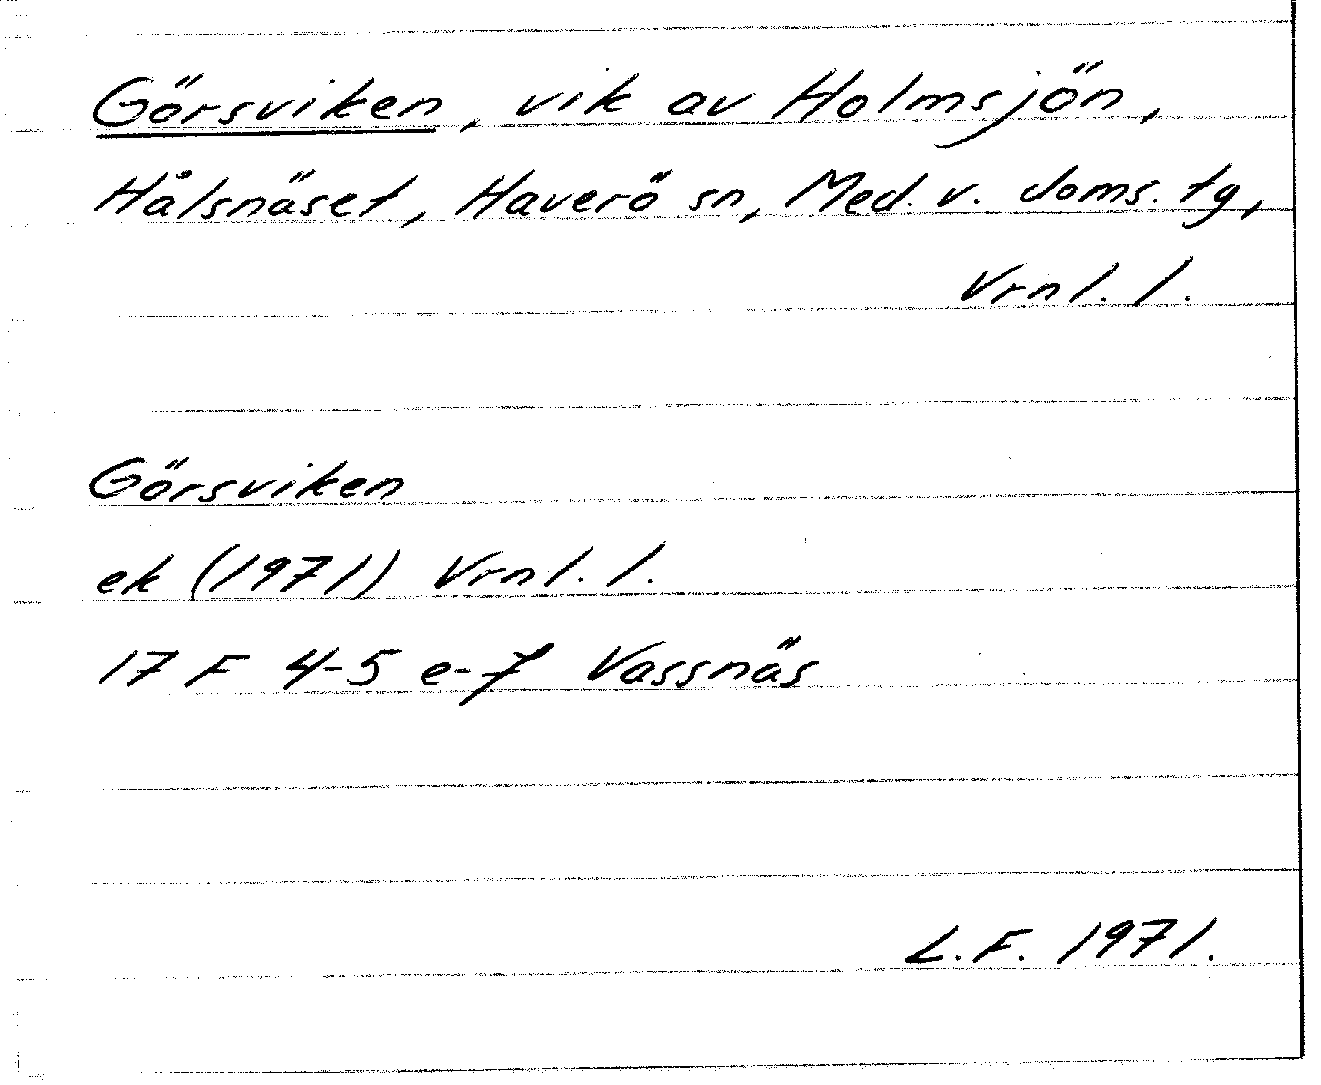 Görsviken, vik av Holmsjön,
Hålsnäset, Haverö sn, Med. v. doms. tg,
Vrnl. l.
Görsviken
ek (1971) Vrnl. l.
17 F 4-5 e-f Vassnäs
L.F. 1971.